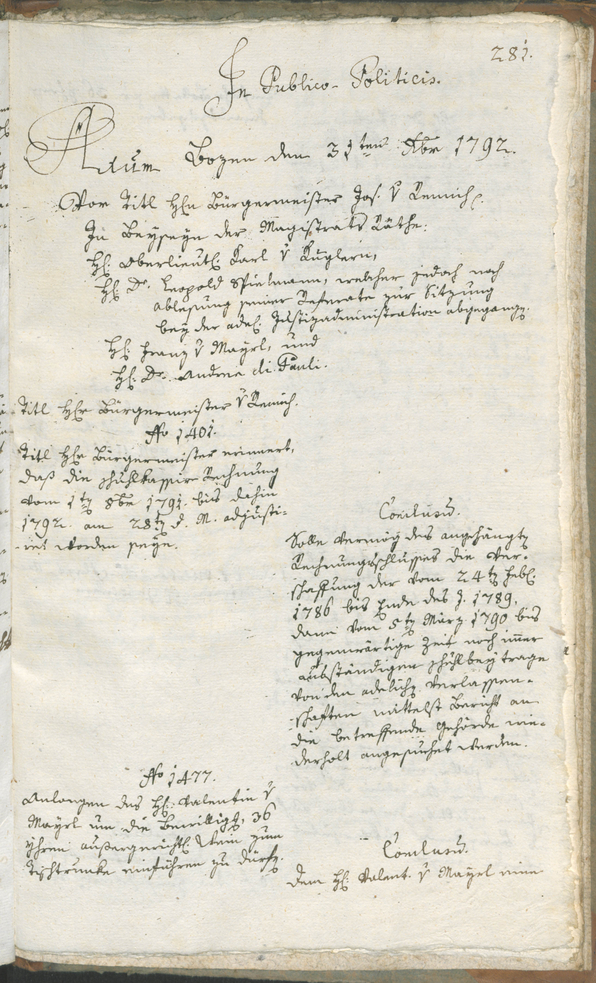 281.
In Publico-Politicis.
Actum Bozen den 31ten 8br 1792.
Vor Titl Hhn Bürgermeister Jos. v Remich.
In Beyseyn der Magistrats Räthe.
H: Oberlieut: Karl v Kuglern,
H: Dr. Leopold Spielmann, welcher jedoch nach
ablesung seiner Referate zur Sitzung
bey der adel: Justizadministration abgegangen.
H: Franz v Mayrl, und
H: Dr. Andrea di Pauli.
Titl Hhr Bürgermeister v Remich.
No 1401.
Titl Hhr Bürgermeister erinnert,
daß die Schulkassier Rechnung
vom 1ten 8br 1791. bis dahin
1792. am 28ten d. M. adjusti-
ret worden seye.
Conclusum.
Solle vermög des angehängten
Rechnungsschlusses die Ver-
schaffung der vom 24ten Febr:
1786 bis Ende des J. 1789,
dann vom 5ten März 1790 bis
gegenwärtige Zeit noch immer
ausständigen Schulbeyträge
von den adelichen Verlassen-
schaften mittelst Bericht an
die betreffende Gehörde wie-
derholt angesuchet werden.
No 1477.
Anlangen des H: Valentin v
Mayrl um die Bewilligung, 36
Yhren außergericht: Wein zum
Tischtrunke einführen zu dürfen.
Conclusum.
Dem H: Valent. v Mayrl eine